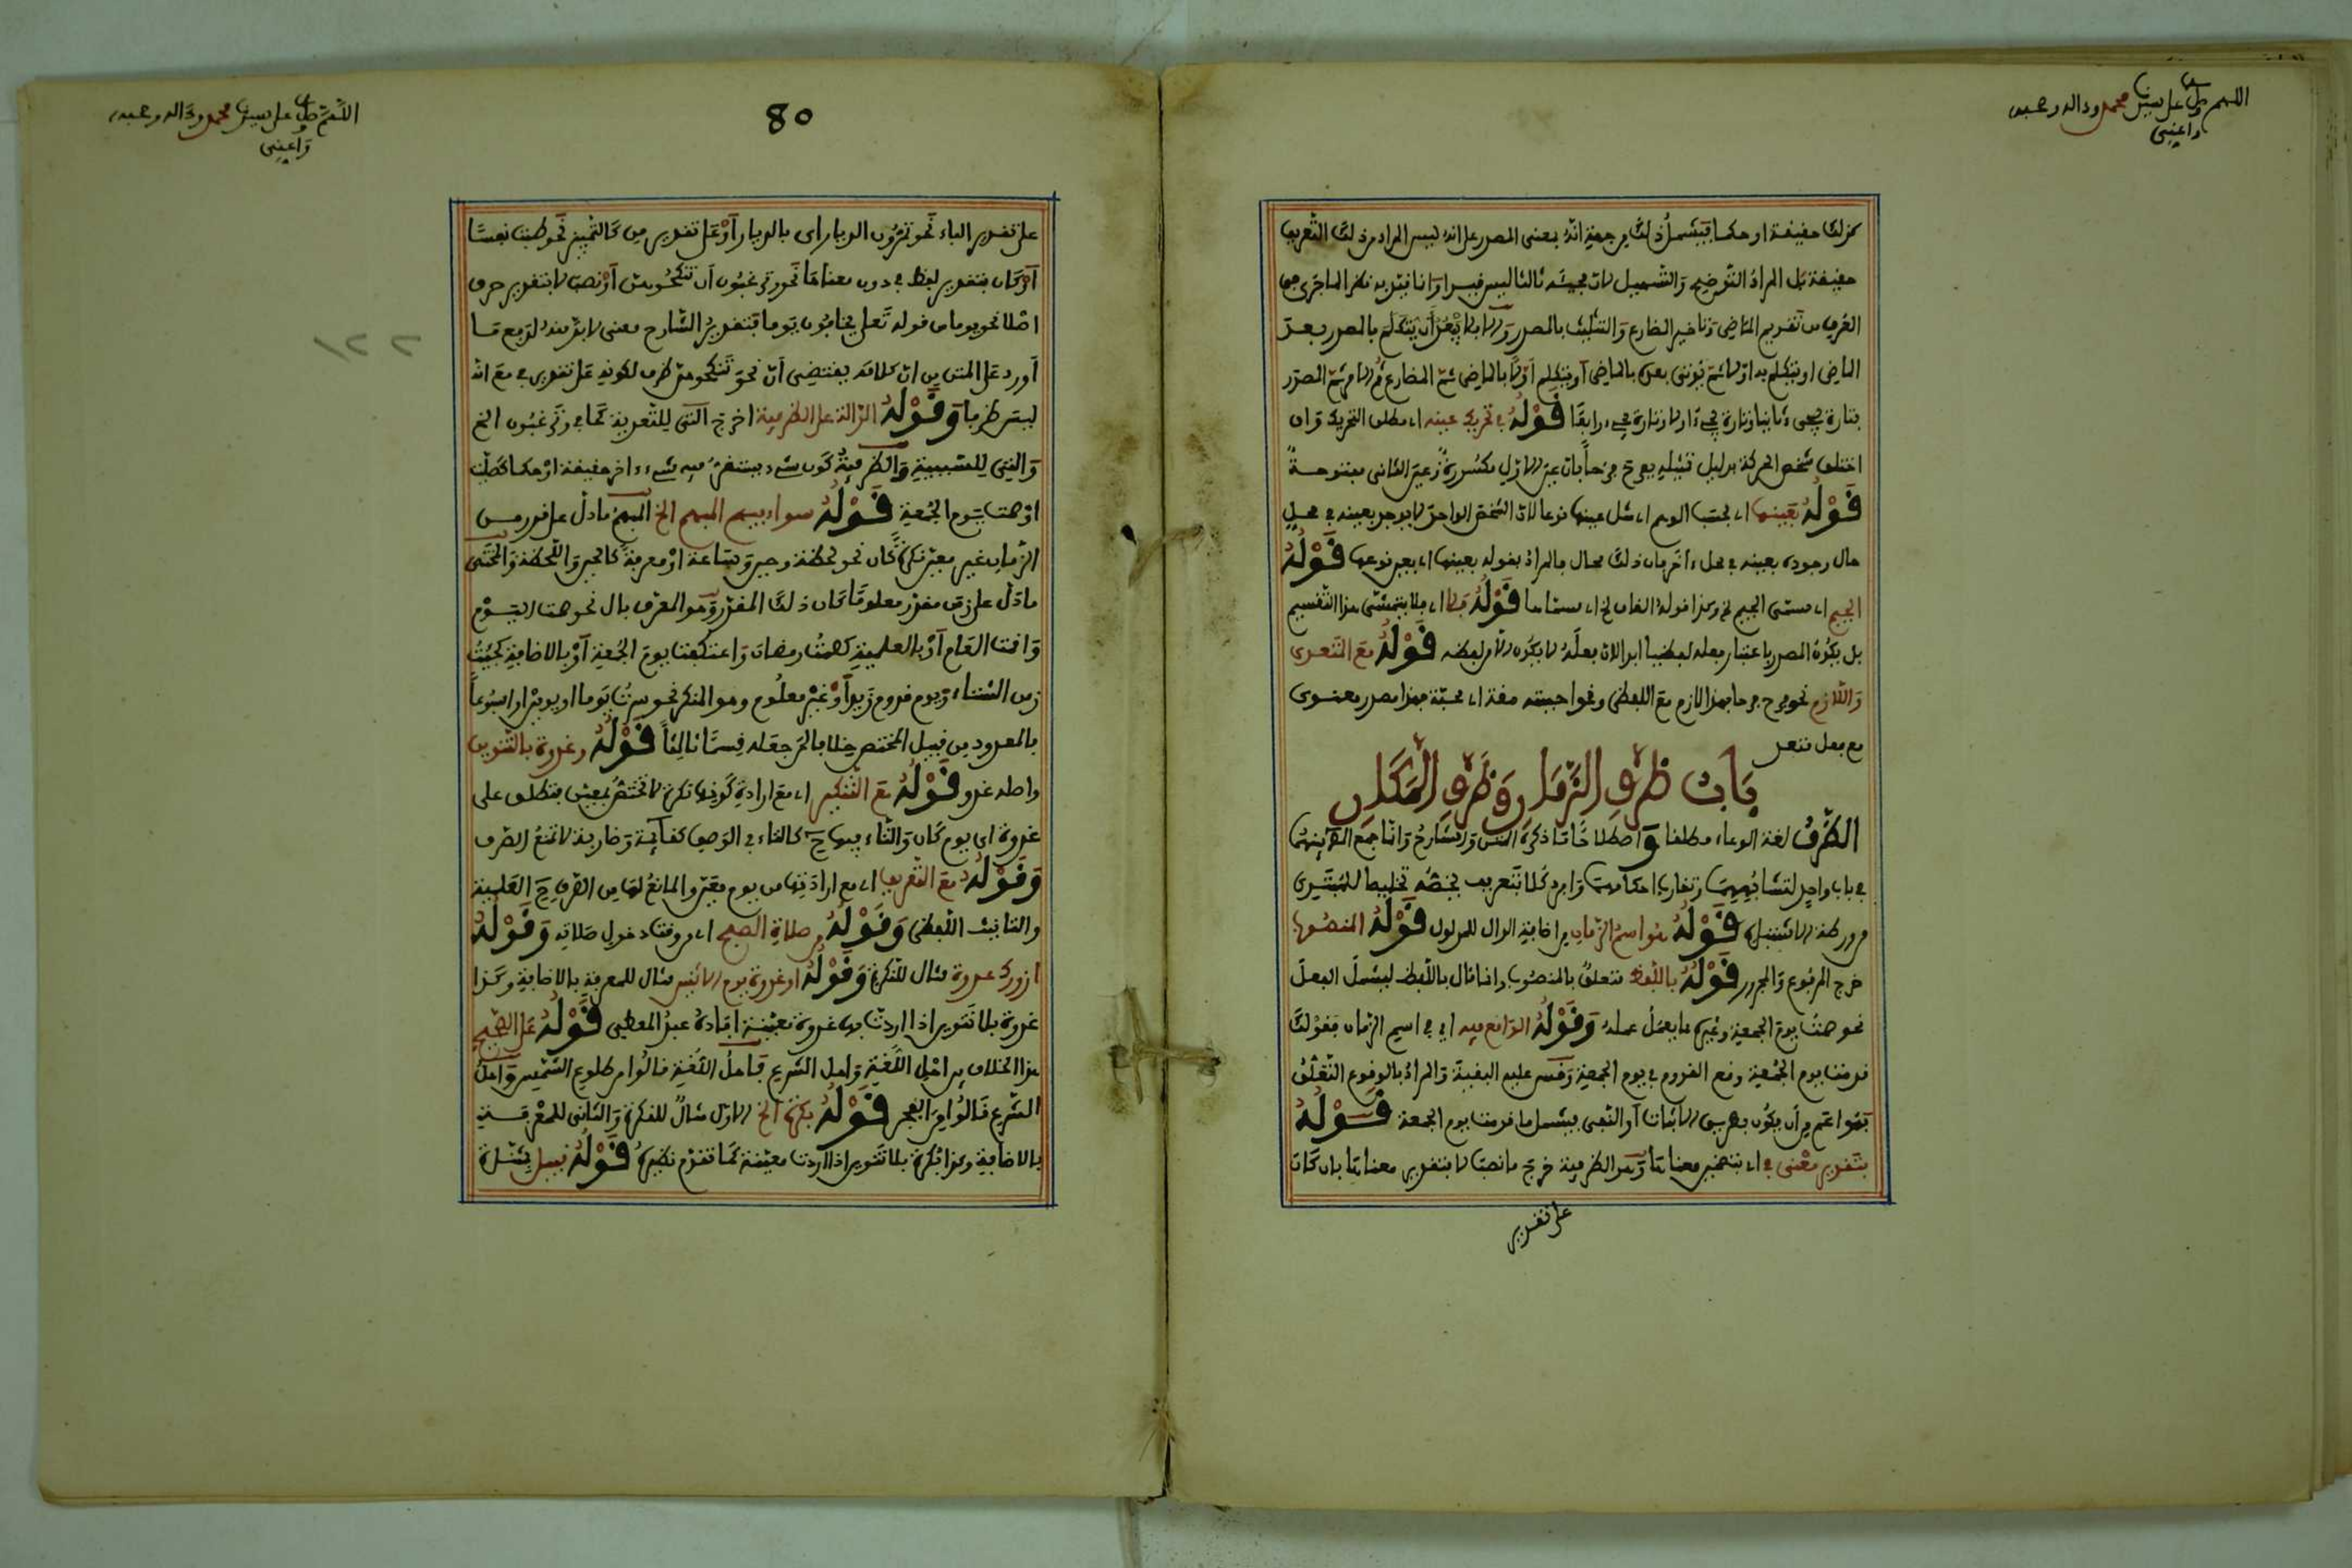 اللهم صل على سيدنا محمد وءاله وصحبه
واعني
كذلك حقيقة او حكما فيشمل ذلك من جهة انه بمعنى المصدر على انه ليس المراد من ذلك التعريف
حقيقة بل المراد التوضيح والتسهيل لان مجيئه ثالثا ليس قيدا وانما قيد به نظرا لما جرى من
العرف من تقديم الماضي وتاخير المضارع والتثليث بالمصدر والا فلا يبعد ان يتكلم بالمصدر بعد
الماضي او يتكلم به اولا ثم يوتى بعده بالماضي او يتكلم اولا بالماضي ثم المضارع ثم الامر ثم المصدر
فتارة يجيء ثانيا وتارة يجيء اولا وتارة يجيء رابعا قوله في تحريك عينه اي مطلق التحريك وان
اختلف شخص الحركة بدليل تمثيله بفرح فرحا فان عين الاول مكسورة وعين الثاني مفتوحة
قوله بعينها اي بحسب الوهم اي مثل عينها نوعا لان الشخص الواحد لا يوجد بعينه في محل
حال وجوده بعينه في محل ءاخر فان ذلك محال فالمراد بقوله بعينها اي بعين نوعها قوله
الجيم اي مسمى الجيم الخ وكذا قوله الفاء الخ اي مسماها قوله فلا اي فلا يتمشى هذا التقسيم
بل يكون المصدر باعتبار فعله لفظيا ابدا لان فعله لا يكون الا من لفظه قوله مع المتعدي
واللازم نحو فرح فرحا فهذا لازم مع اللفظي ونحو احببته مقة اي محبة فهذا مصدر معنوي
مع فعل متعد
باب ظرف الزمان وظرف المكان
الظرف لغة الوعاء مطلقا واصطلاحا ما ذكره المتن والشارح وانما جمع الظرفين
في باب واحد لتشابههما وتقارب احكامهما وافرد كلا بتعريف يخصه تخليصا للمبتدي
من ورطة الاشتباه قوله هو اسم الزمان من اضافة الدال للمدلول قوله المنصوب
خرج المرفوع والمجرور قوله باللفظ متعلق بالمنصوب وانما قال باللفظ ليشمل الفعل
نحو صمت يوم الجمعة وغيره مما يعمل عمله وقوله الواقع فيه اي في اسم الزمان فقولك
قدمت يوم الجمعة وقع القدوم في يوم الجمعة وقس عليه البقية والمراد بالوقوع التعلق
فهو اعم من ان يكون بطريق الاثبات او النفي فيشمل ما قدمت يوم الجمعة قوله
بتقدير معنى في اي بتضمين معناها وهو الظرفية خرج ما نصب لا بتقدير معناها بان كان
على تقدير
اللهم صل على سيدنا محمد وءاله وصحبه
واعني
80
على تقدير الباء نحو تمرون الديار اي بالديار او على تقدير من كالتمييز نحو طبت نفسا
او كان بتقدير لفظ في دون معناها نحو وترغبون ان تنكحوهن او نصب لا بتقدير حرف
اصلا نحو يوما من قوله تعلى يخافون يوما فتقدير الشارح معنى لا بد منه لدفع ما
اورد على المتن من ان كلامه يقتضي ان نحو تنكحوهن ظرف لكونه على تقدير في مع انه
ليس ظرفا وقوله الدالة على الظرفية اخرج التي للتعدية كما في وترغبون الخ
والتي للسببية والظرفية كون شيء يستقر فيه شيء ءاخر حقيقة او حكما كصليت
او صمت يوم الجمعة قوله سواء فيهم المبهم الخ المبهم ما دل على قدر من
الزمان غير معين نكرة كان نحو لحظة وحين وساعة او معرفة كالحين واللحظة والمختص
ما دل على زمن مقدر معلوما كان ذلك المقدر وهو المعرف بال نحو صمت اليوم
واقمت العام او بالعلمية كصمت رمضان واعتكفت يوم الجمعة او بالاضافة كجئت
زمن الشتاء ويوم قدوم زيد او غير معلوم وهو المنكر نحو سرت يوما او يومين او اسبوعا
فالمعدود من قبيل المختص خلافا لمن جعله قسما ثالثا قوله وغدوة بالتنوين
واصله غدو قوله مع التنكير اي مع ارادة كونها نكرة لا تختص بمعين فتطلق على
غدوة اي يوم كان والتاء فيها ح كالتاء في الوصف كقائمة وضاربة لا تمنع الصرف
وقوله مع التعريف اي مع ارادتها من يوم معين والمانع لها من الصرف ح العلمية
والتانيث اللفظي وقوله من صلاة الصبح اي من وقت دخول صلاته وقوله
ازورك غدوة مثال للنكرة وقوله او غدوة يوم الاثنين مثال للمعرفة بالاضافة وكذا
غدوة بلا تنوين اذا اردت بها غدوة معينة افاده عبد المعطي قوله على الصحيح
هذا الخلاف بين اهل اللغة واهل الشرع فاهل اللغة قالوا من طلوع الشمس واهل
الشرع قالوا من الفجر قوله بكرة الخ الاول مثال للنكرة والثاني للمعرفة
بالاضافة وكذا بكرة بلا تنوين اذا اردت معينة كما تقدم نظيره قوله قبيل